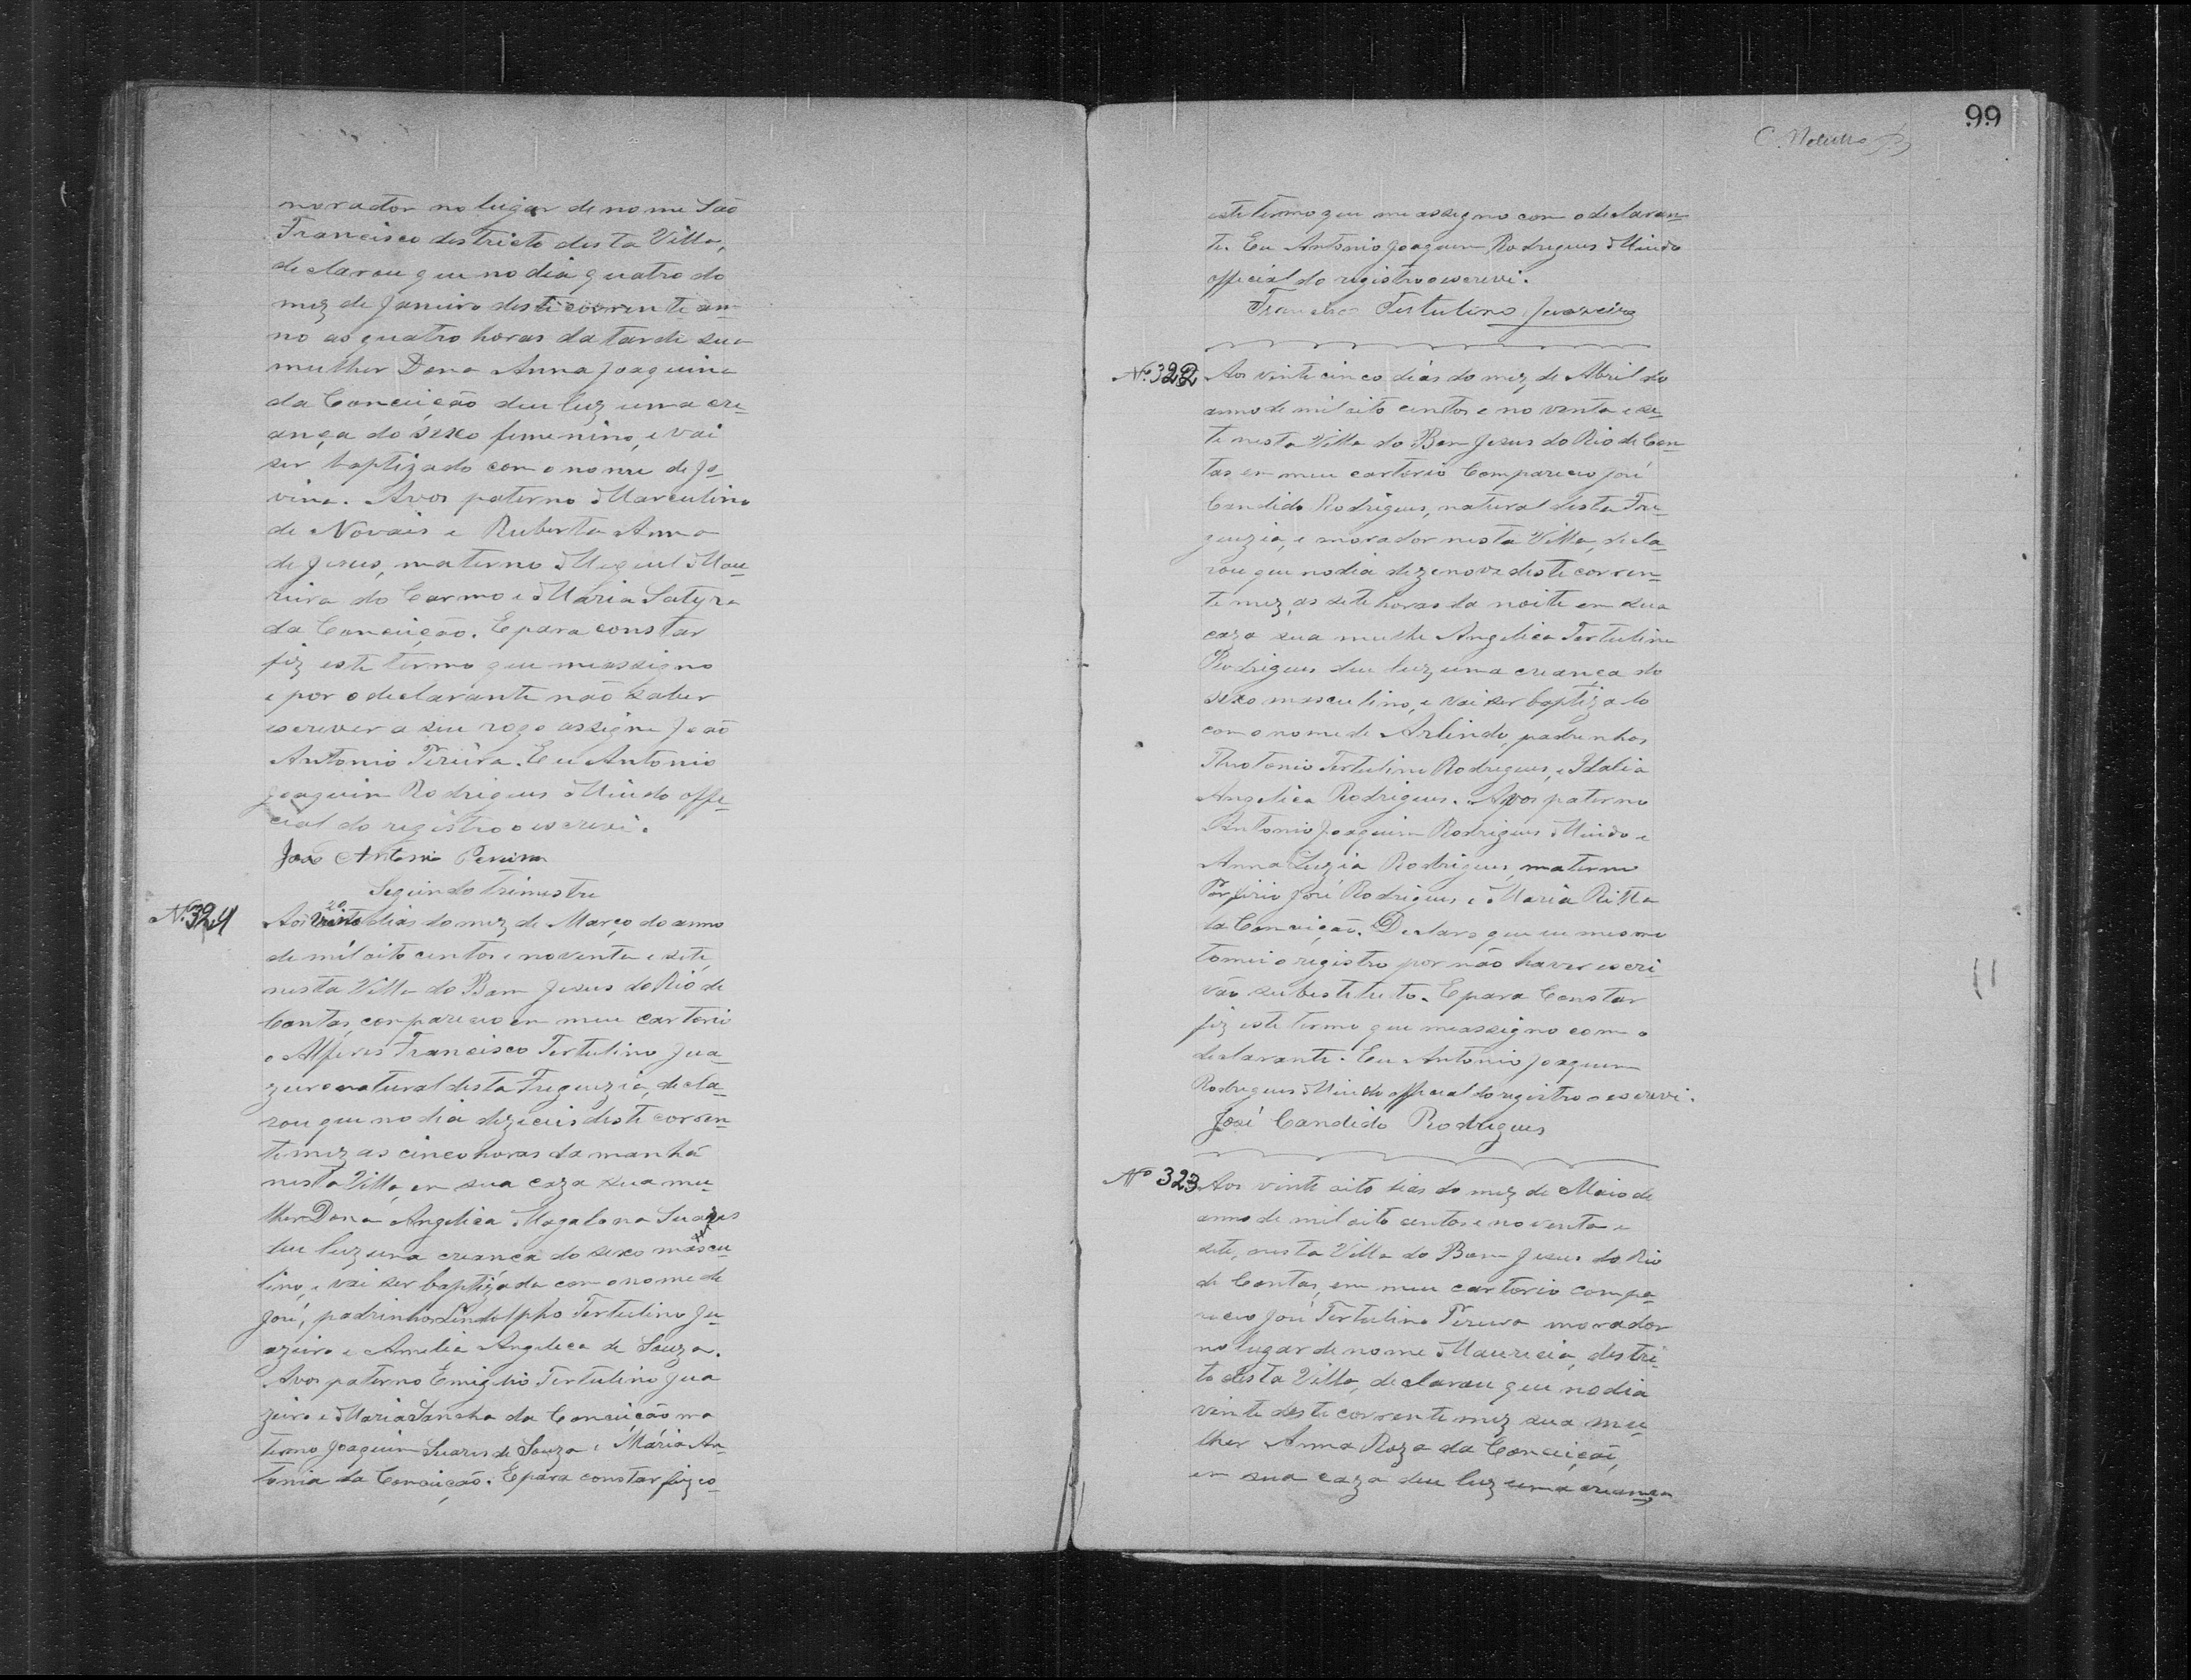 morador no lugar de nome São
Francisco destricto desta Villa,
declarou que no dia quatro do
mez de Janeiro deste corrente an-
no as quatro horas da tarde sua
mulher Dona Anna Joaquina
da Conceição deu luz uma cre-
ança do sexo femenino, e vai
ser baptizado com o nome de Jo-
vina. Avos paterno Marculino
de Novais e Ruberta Anna
de Jesus, materno Miguel Mou-
reira do Carmo e Maria Satyra
da Conceição. E para constar
fiz este termo que me assigno
e por o declarante não saber
escrever a seu rogo assigna João
Antonio Pereira. Eu Antonio
Joaquim Rodrigues Miudo offi-
cial do registro o escrevi.
João Antonio Pereira
Segundo trimestre
Nº 321
Aos vinte 20 dias do mez de Março do anno
de mil oito centos e noventa e sete,
nesta Villa do Bom Jesus do Rio de
Contas, compareceo em meu cartorio
o Alferes Francisco Tertulino Jua-
zeiro natural desta Freguezia, decla-
rou que no dia dezeceis deste corren-
te mez as cinco horas da manhã
nesta Villa, em sua caza sua mu-
lher Dona Angelica Magalona Suares
deu luz uma creança do sexo mascu-
lino, e vai ser baptizado com o nome de
José, padrinhos Lindolpho Tertulino Ju-
azeiro e Amelia Angelica de Souza.
Avos paterno Emigdio Tertulino Jua
zeiro e Maria Sancha da Conceição ma
terno Joaquim Suares de Souza e Mária An-
tonia da Conceição. E para constar fiz es-
99
este termo que me assigno com o declaran-
te. Eu Antonio Joaquim Rodrigues Miudo
official do registro o escrevi.
Francisco Tertulino Juazeiro
Nº 322
Aos vinte cinco dias do mez de Abril do
anno de mil oito centos e noventa e se-
te nesta Villa do Bom Jesus do Rio de Con-
tas, em meu cartorio Compareceo José
Candido Rodrigues, natural desta Fre-
guezia, e morador nesta Villa, decla-
rou que no dia dezenove deste corren-
te mez, as sete horas da noite em sua
caza sua mulhe Angelica Tertulina
Rodrigues deu luz uma creança do
sexo masculino, e vai ser baptizado
com o nome de Arlindo, padrinhos
Theotonio Tertulino Rodrigues, e Idalia
Angelica Rodrigues. Avos paterno
Antonio Joaquim Rodrigues Miudo e
Anna Luzia Rodrigues, materno
Porfirio José Rodrigues e Maria Ritta
da Conceição. Declaro que eu mesmo
tomei o registro por não haver escri-
vão substituto. E para Constar
fiz este termo que me assigno com o
declarante. Eu Antonio Joaquim
Rodrigues Miudo official do registro o escrevi.
José Candido Rodrigues
Nº 323
Aos vinte oito dias do mez de Maio de
anno de mil oito centos e noventa e
sete, nesta Villa do Bom Jesus do Rio
de Contas, em meu cartorio compa-
receo José Tertulino Pereira morador
no lugar de nome Mauricia, destri-
to desta Villa, declarou que no dia
vinte deste corrente mez sua mu-
lher Anna Roza da Conceição,
em sua caza deu luz uma creança